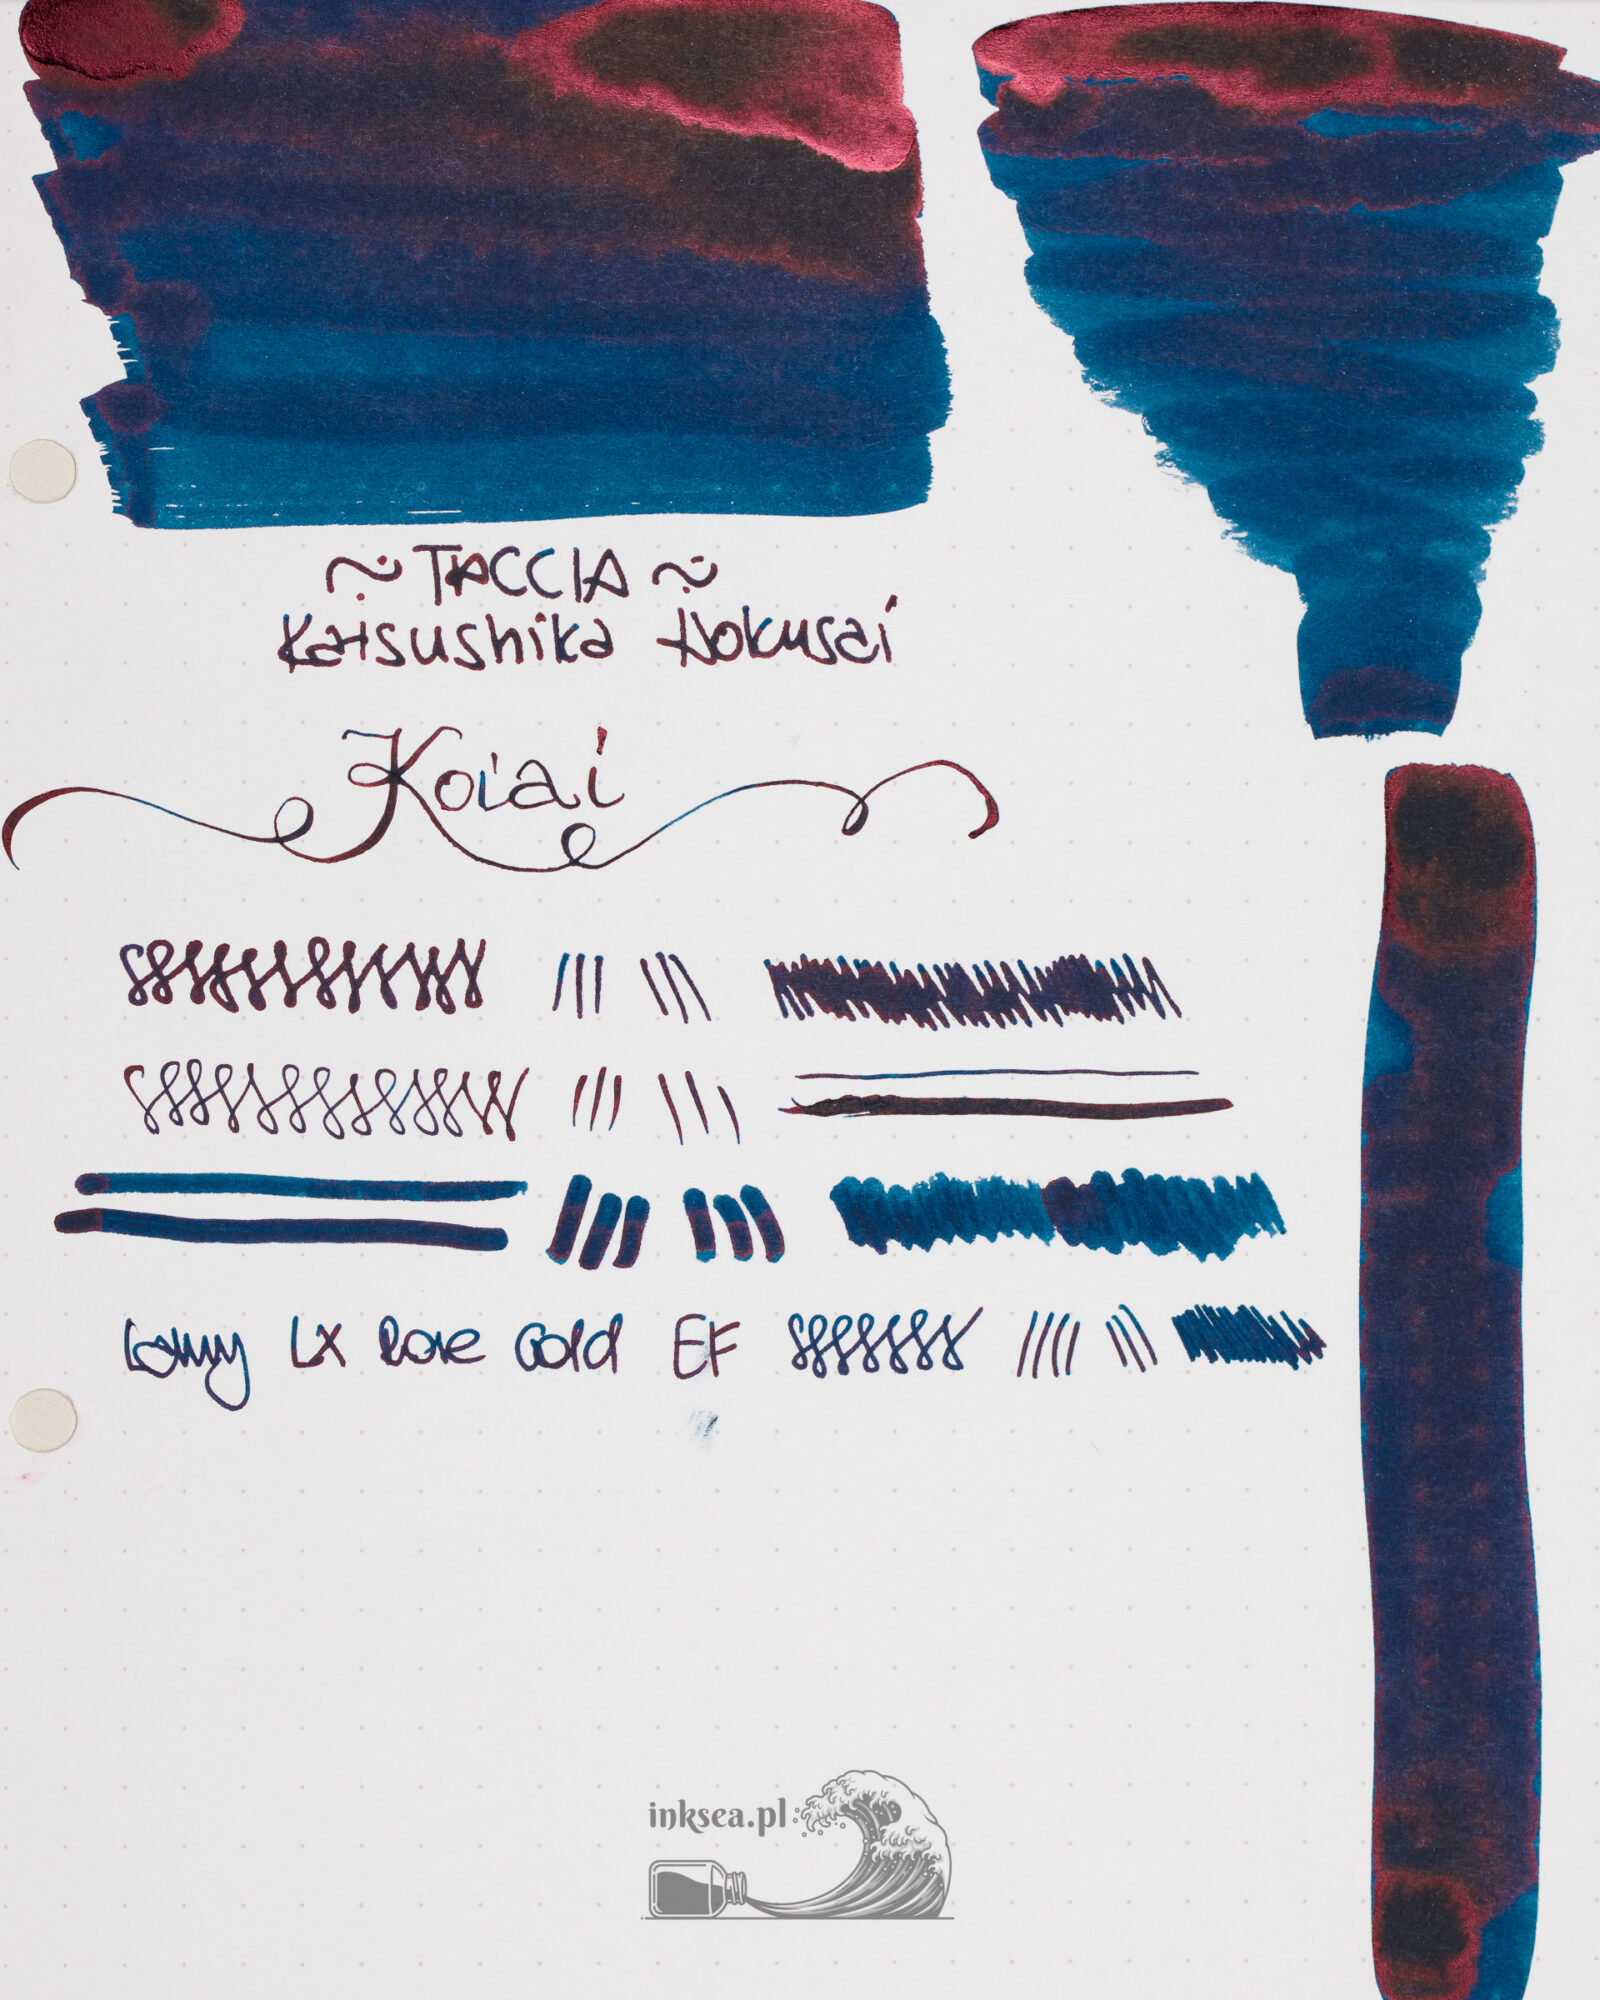 ~ TACCIA ~
Katsushika Hokusai
Koiai
Lamy LX Rose Gold EF
inksea.pl